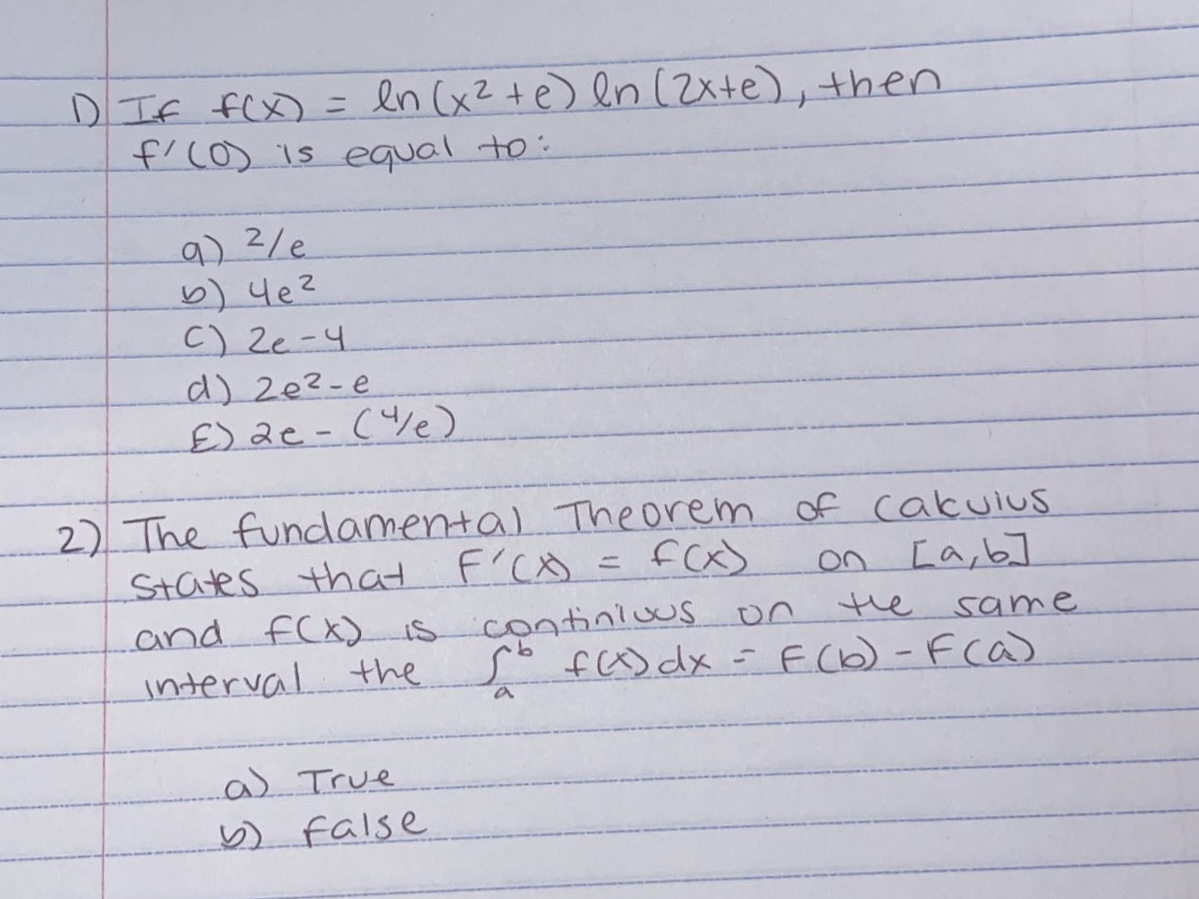 1) If f(x) = ln(x² + e) ln(2x+e), then
f'(0) is equal to:
a) 2/e
b) 4e²
c) 2e - 4
d) 2e² - e
E) 2e - (4/e)
2) The fundamental Theorem of calculus
states that F'(x) = f(x) on [a,b]
and f(x) is continiuos on the same
interval the ∫ₐᵇ f(x)dx = F(b) - F(a)
a) True
b) false